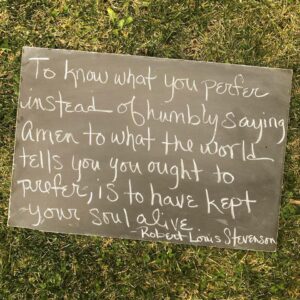 To know what you perfer
instead of humbly saying
Amen to what the world
tells you you ought to
prefer, is to have kept
your soul alive
-Robert Louis Stevenson